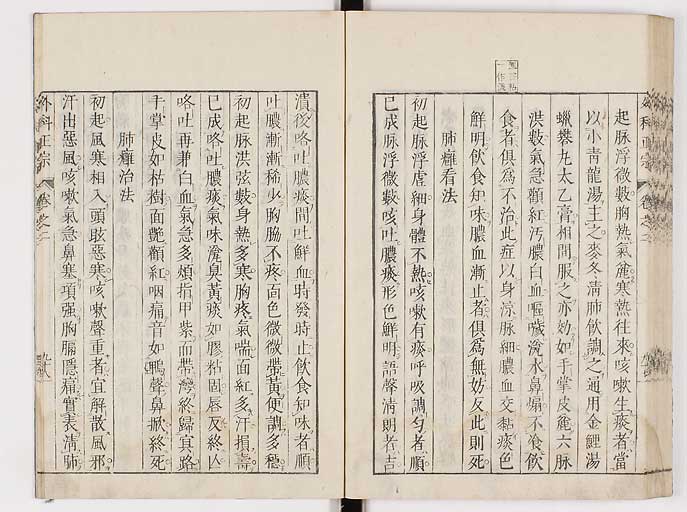 起脉浮微數胸熱氣麄寒熱往來咳嗽生痰者當
以小青龍湯主之麥冬清肺飲調之通用金鯉湯
蠟礬丸太乙膏相間服之亦効如手掌皮麄六脉
洪數氣急顴紅汚膿白血嘔噦瀼水鼻煽不食飲
食者俱爲不治此症以身涼脉細膿血交黏痰色
鮮明飲食知味膿血漸止者俱爲無妨反此則死
肺癰看法
初起脉浮虚細身體不熱咳嗽有痰呼吸調勻者順
已成脉浮微數咳吐膿痰形色鮮明語聲清朗者吉
潰後咯吐膿痰間吐鮮血時發時止飲食知味者順
吐膿漸漸稀少胸脇不疼面色微微帶黃便調多穩
初起脉洪弦數身熱多寒胸疼氣喘面紅多汗損壽
已成咯吐膿痰氣味瀼臭黃痰如膠粘固唇反終凶
咯吐再兼白血氣急多煩指甲紫而帶灣終歸冥路
手掌皮如枯樹面艷顴紅咽痛音如鴨聲鼻掀終死
肺癰治法
初起風寒相入頭眩惡寒咳嗽聲重者宜解散風邪
汗出惡風咳嗽氣急鼻塞項强胸膈隱痛實表清肺
外科正宗
卷之二